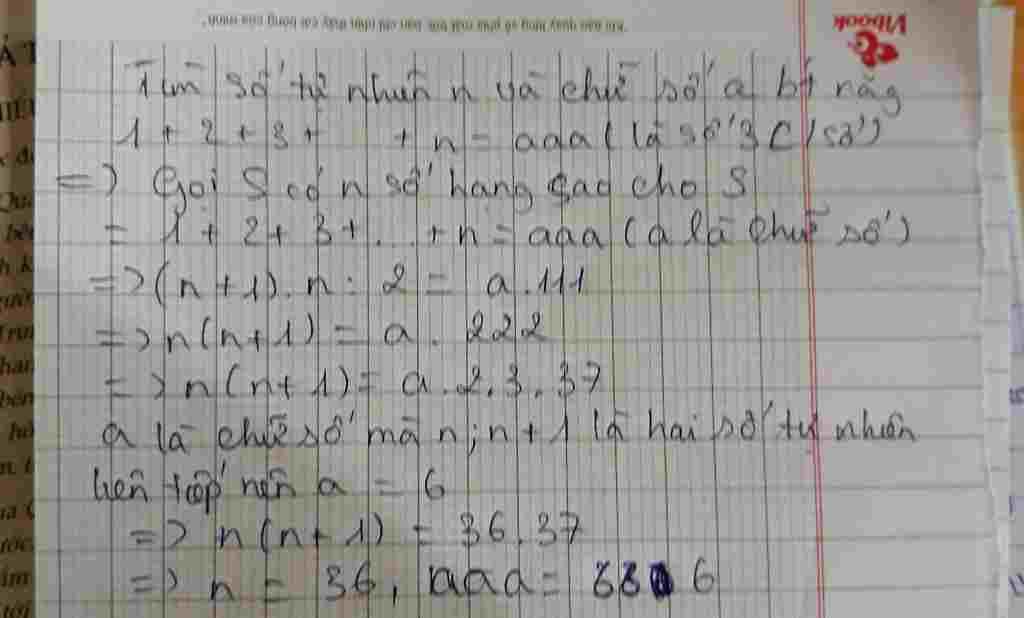 Vibook
Tìm số tự nhiên n và chữ số a bt rằng
1 + 2 + 3 + + n = aaa (là số 3 c/số)
=> Gọi S có n số hạng sao cho S
= 1 + 2 + 3 + ... + n = aaa (a là chữ số)
=> (n + 1) . n : 2 = a . 111
=> n(n + 1) = a . 222
=> n(n + 1) = a . 2 . 3 . 37
a là chữ số mà n; n + 1 là hai số tự nhiên
liên tiếp nên a = 6
=> n(n + 1) = 36 . 37
=> n = 36, aaa = 66 6